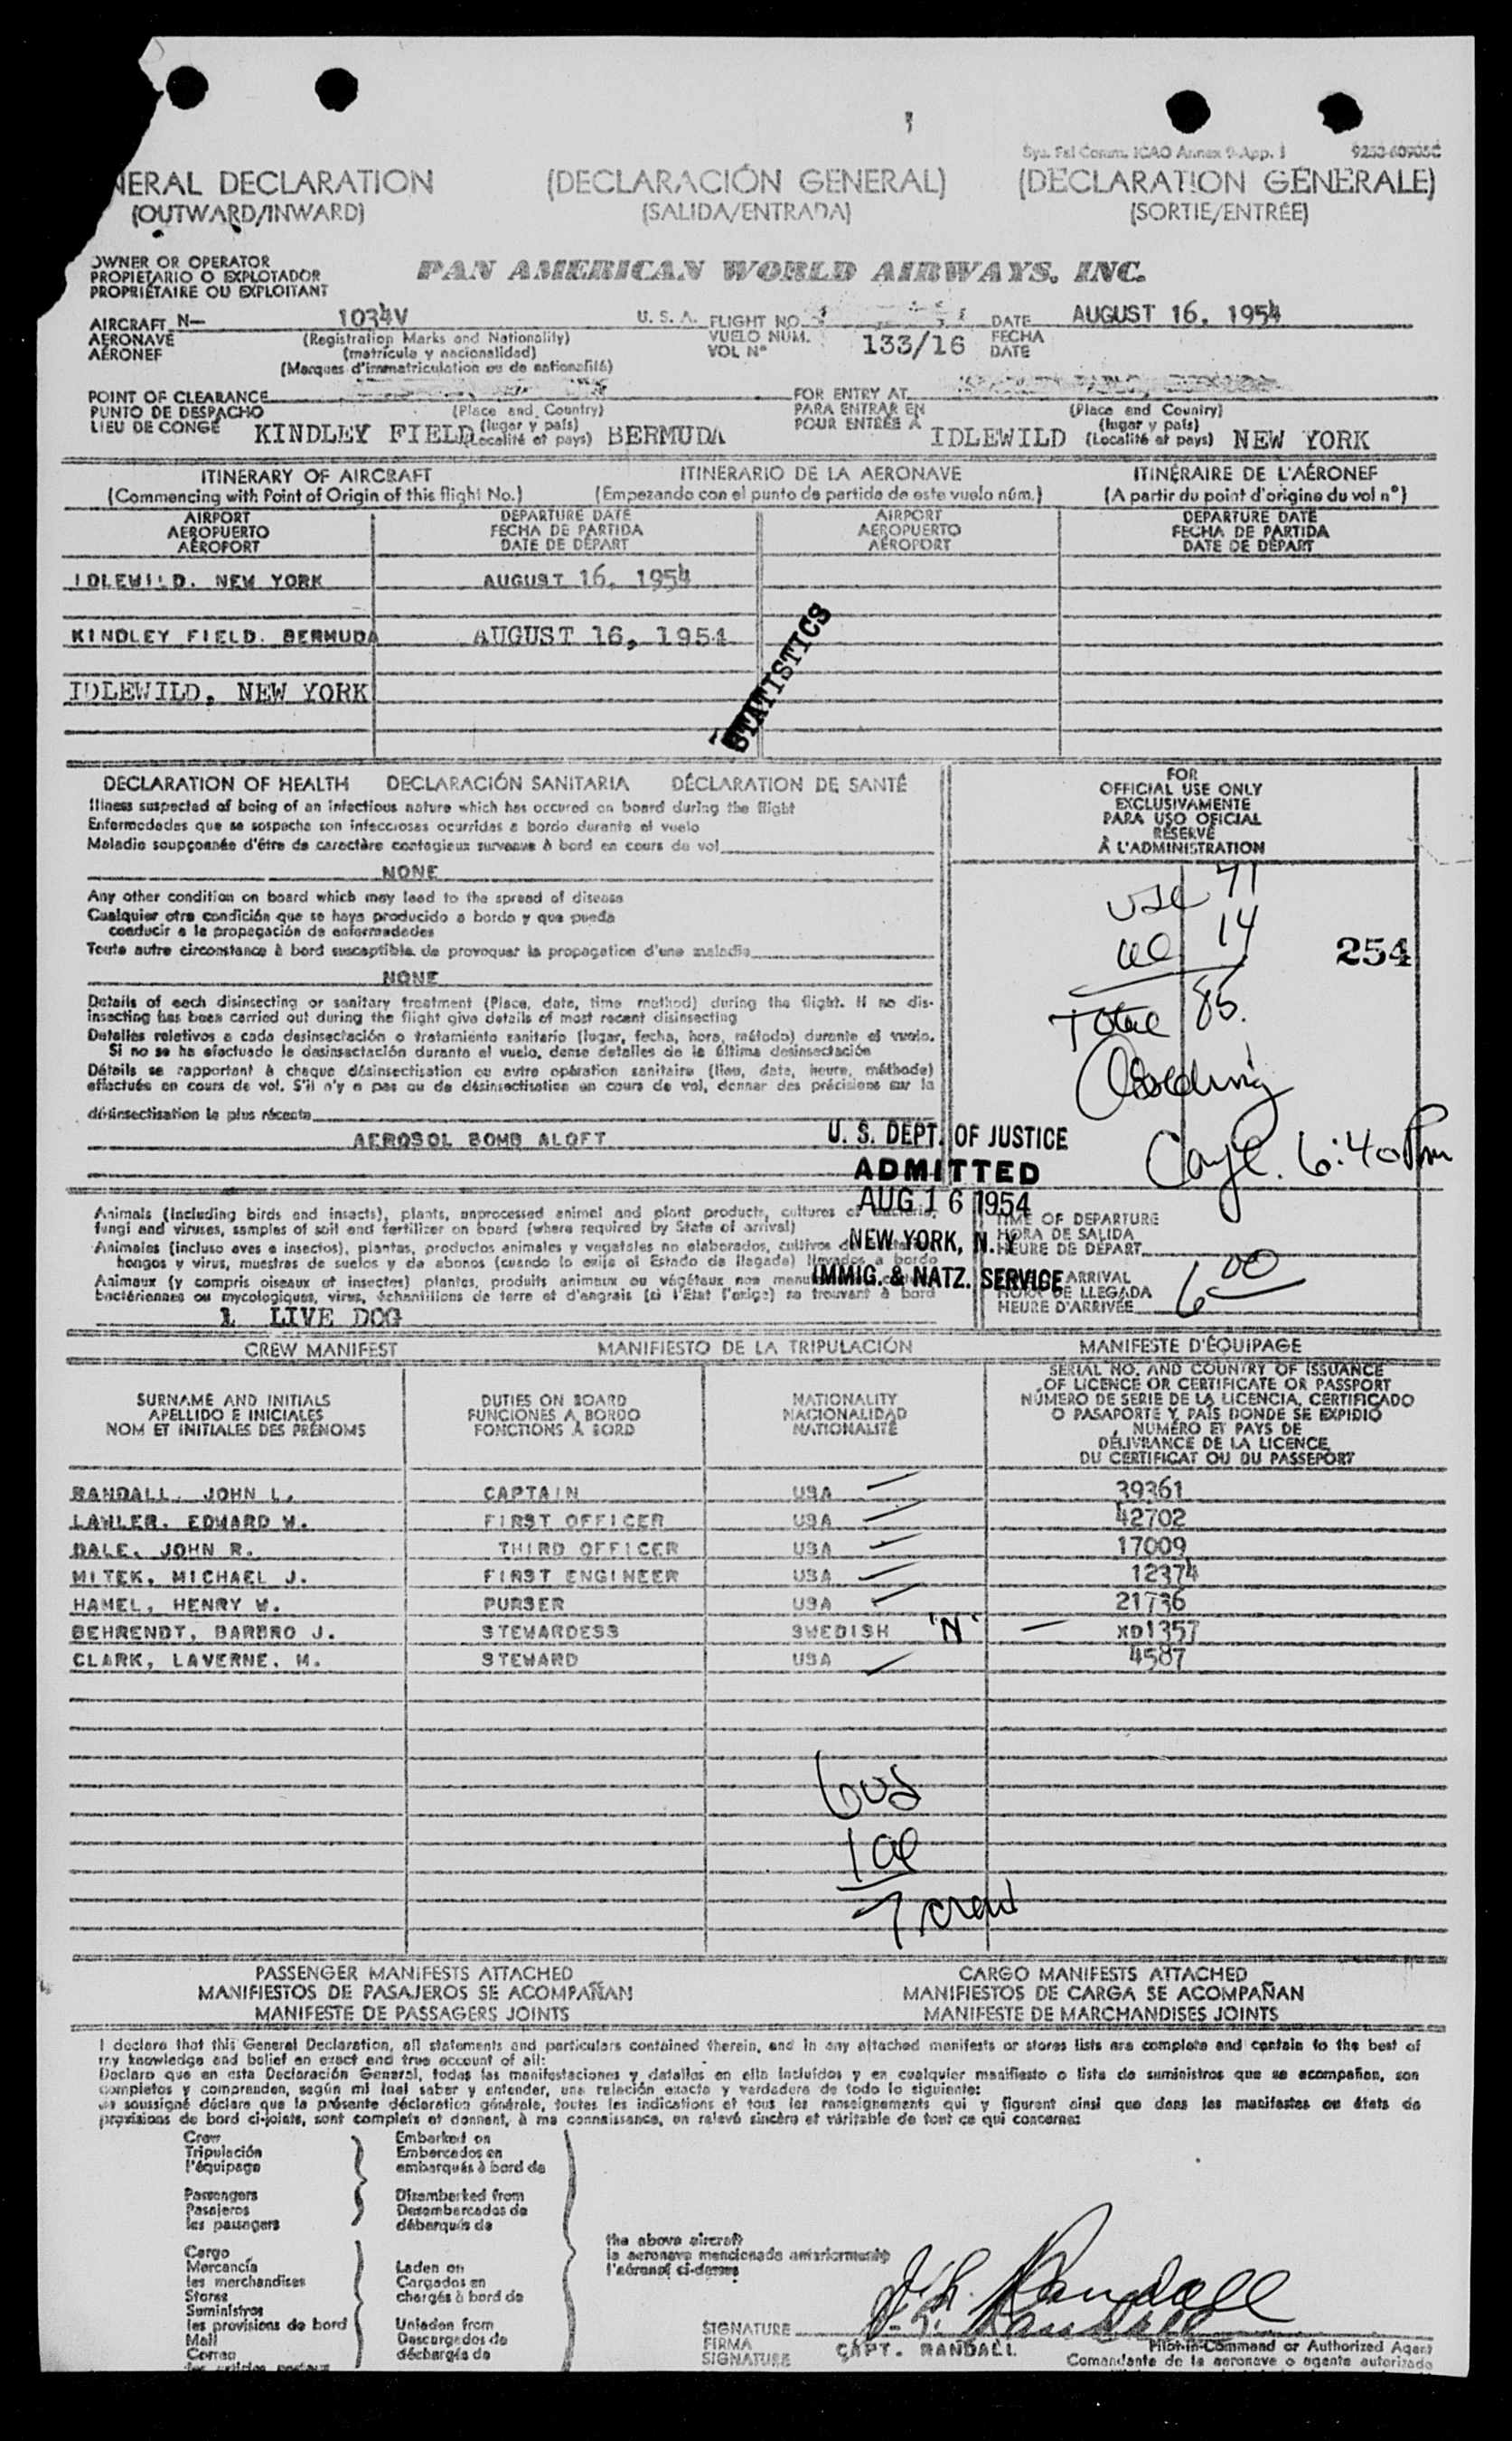 NERAL DECLARATION (DECLARACIÓN GENERAL) (DECLARATION GÉNÉRALE)
(OUTWARD/INWARD) (SALIDA/ENTRADA) (SORTIE/ENTRÉE)
Annex 9-App. 1
OWNER OR OPERATOR
PROPIETARIO O EXPLOTADOR
PROPRIÉTAIRE OU EXPLOITANT
PAN AMERICAN WORLD AIRWAYS, INC.
AIRCRAFT N— 1034V U. S. A. FLIGHT NO. DATE AUGUST 16, 1954
AERONAVE (Registration Marks and Nationality) VUELO NÚM. 133/16 FECHA
AÉRONEF (matrícula y nacionalidad) VOL Nº DATE
(Marques d'immatriculation ou de nationalité)
POINT OF CLEARANCE FOR ENTRY AT
PUNTO DE DESPACHO (Place and Country) PARA ENTRAR EN (Place and Country)
LIEU DE CONGÉ KINDLEY FIELD (lugar y país) (Localité et pays) BERMUDA POUR ENTRÉE À IDLEWILD (lugar y país) (Localité et pays) NEW YORK
ITINERARY OF AIRCRAFT ITINERARIO DE LA AERONAVE ITINÉRAIRE DE L'AÉRONEF
(Commencing with Point of Origin of this flight No.) (Empezando con el punto de partida de este vuelo núm.) (A partir du point d'origine du vol nº)
AIRPORT DEPARTURE DATE AIRPORT DEPARTURE DATE
AEROPUERTO FECHA DE PARTIDA AEROPUERTO FECHA DE PARTIDA
AÉROPORT DATE DE DÉPART AÉROPORT DATE DE DÉPART
IDLEWILD, NEW YORK AUGUST 16, 1954
KINDLEY FIELD, BERMUDA AUGUST 16, 1954
IDLEWILD, NEW YORK
STATISTICS
DECLARATION OF HEALTH DECLARACIÓN SANITARIA DÉCLARATION DE SANTÉ
Illness suspected of being of an infectious nature which has occured on board during the flight
Enfermedades que se sospecha son infecciosas ocurridas a bordo durante el vuelo
Maladie soupçonnée d'être de caractère contagieux survenue à bord en cours de vol
NONE
Any other condition on board which may lead to the spread of disease
Cualquier otra condición que se haya producido a bordo y que pueda
conducir a la propagación de enfermedades
Toute autre circonstance à bord susceptible de provoquer la propagation d'une maladie
NONE
Details of each disinsecting or sanitary treatment (Place, date, time method) during the flight. If no dis-
insecting has been carried out during the flight give details of most recent disinsecting
Detalles relativos a cada desinsectación o tratamiento sanitario (lugar, fecha, hora, método) durante el vuelo.
Si no se ha efectuado la desinsectación durante el vuelo, dense detalles de la última desinsectación
Détails se rapportant à chaque désinsectisation ou autre opération sanitaire (lieu, date, heure, méthode)
effectués en cours de vol. S'il n'y a pas eu de désinsectisation en cours de vol, donner des précisions sur la
désinsectisation la plus récente
AEROSOL BOMB ALOFT
FOR
OFFICIAL USE ONLY
EXCLUSIVAMENTE
PARA USO OFICIAL
RÉSERVÉ
À L'ADMINISTRATION
71
14
254
Total 85.
6:40 Pm
U. S. DEPT. OF JUSTICE
ADMITTED
AUG 16 1954
NEW YORK, N. Y.
IMMIG. & NATZ. SERVICE
Animals (including birds and insects), plants, unprocessed animal and plant products, cultures of bacteria,
fungi and viruses, samples of soil and fertilizer on board (where required by State of arrival)
Animales (incluso aves e insectos), plantas, productos animales y vegetales no elaborados, cultivos de
hongos y virus, muestras de suelos y de abonos (cuando lo exija el Estado de llegada) llevados a bordo
Animaux (y compris oiseaux et insectes) plantes, produits animaux ou végétaux non
bactériennes ou mycologiques, virus, échantillons de terre et d'engrais (si l'Etat l'exige) se trouvant à bord
1 LIVE DOG
TIME OF DEPARTURE
HORA DE SALIDA
HEURE DE DÉPART
ARRIVAL
HORA DE LLEGADA
HEURE D'ARRIVÉE
6 00
CREW MANIFEST MANIFIESTO DE LA TRIPULACIÓN MANIFESTE D'ÉQUIPAGE
SURNAME AND INITIALS
APELLIDO E INICIALES
NOM ET INITIALES DES PRÉNOMS
DUTIES ON BOARD
FUNCIONES A BORDO
FONCTIONS À BORD
NATIONALITY
NACIONALIDAD
NATIONALITÉ
SERIAL NO. AND COUNTRY OF ISSUANCE
OF LICENCE OR CERTIFICATE OR PASSPORT
NÚMERO DE SERIE DE LA LICENCIA, CERTIFICADO
O PASAPORTE Y PAÍS DONDE SE EXPIDIÓ
NUMÉRO ET PAYS DE
DÉLIVRANCE DE LA LICENCE
DU CERTIFICAT OU DU PASSEPORT
RANDALL, JOHN L. CAPTAIN USA 39361
LAWLER, EDWARD W. FIRST OFFICER USA 42702
DALE, JOHN R. THIRD OFFICER USA 17009
MITEK, MICHAEL J. FIRST ENGINEER USA 12374
HAMEL, HENRY W. PURSER USA 21736
BEHRENDT, BARBRO J. STEWARDESS SWEDISH "N" XD1357
CLARK, LAVERNE, M. STEWARD USA 4587
7 crew
PASSENGER MANIFESTS ATTACHED CARGO MANIFESTS ATTACHED
MANIFIESTOS DE PASAJEROS SE ACOMPAÑAN MANIFIESTOS DE CARGA SE ACOMPAÑAN
MANIFESTE DE PASSAGERS JOINTS MANIFESTE DE MARCHANDISES JOINTS
I declare that this General Declaration, all statements and particulars contained therein, and in any attached manifests or stores lists are complete and contain to the best of
my knowledge and belief an exact and true account of all:
Declaro que en esta Declaración General, todas las manifestaciones y detalles en ella incluídos y en cualquier manifiesto o lista de suministros que se acompañan, son
completos y comprenden, según mi leal saber y entender, una relación exacta y verdadera de todo lo siguiente:
soussigné déclare que la présente déclaration générale, toutes les indications et tous les renseignements qui y figurent ainsi que dans les manifestes ou états de
provisions de bord ci-joints, sont complets et donnent, à ma connaissance, un relevé sincère et véritable de tout ce qui concerne:
Crew Embarked on
Tripulación Embarcados en
l'équipage embarqués à bord de
Passengers Disembarked from
Pasajeros Desembarcados de
les passagers débarqués de
the above aircraft
la aeronave mencionada anteriormente
l'aéronef ci-dessus
Cargo
Mercancía Laden on
les marchandises Cargados en
Stores chargés à bord de
Suministros
les provisions de bord Unladen from
Mail Descargados de
Correo déchargés de
J. L. Randall
J. L. Randall
SIGNATURE
FIRMA CAPT. RANDALL Pilot-in-Command or Authorized Agent
SIGNATURE Comandante de la aeronave o agente autorizado